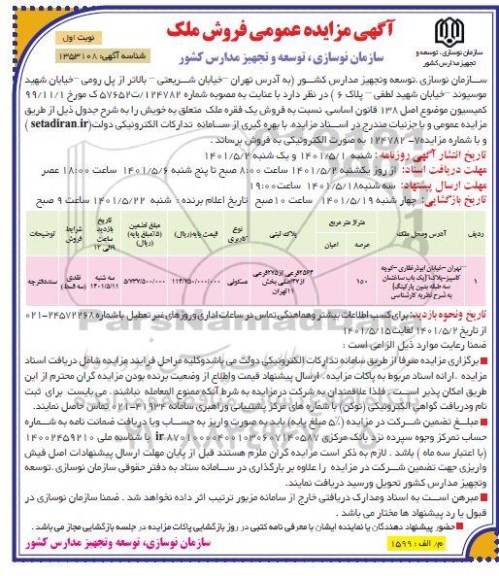 نوبت اول
آگهی مزایده عمومی فروش ملک
شناسه آگهی: ۱۳۵۳۱۰۸
سازمان نوسازی ، توسعه و تجهیز مدارس کشور
سازمان نوسازی ، توسعه و تجهیز مدارس کشور
سازمان نوسازی .توسعه وتجهیز مدارس کشور (به آدرس تهران –خیابان شریعتی – بالاتر از پل رومی –خیابان شهید
موسیوند –خیابان شهید لطفی – پلاک ۶ ) در نظر دارد با عنایت به مصوبه شماره ۱۲۴۷۸۲/ت۵۷۶۵۲ک مورخ ۹۹/۱۱/۱
کمیسیون موضوع اصل ۱۳۸ قانون اساسی, نسبت به فروش یک فقره ملک متعلق به خویش را به شرح جدول ذیل از طریق
مزایده عمومی و با جزئیات مندرج در اسناد مزایده با بهره گیری از سامانه تدارکات الکترونیکی دولت( setadiran.ir )
و با شماره مزایده ۷–۱۲۴۷۸۲ به صورت الکترونیکی به فروش برساند .
تاریخ انتشار آگهی روزنامه : شنبه ۱۴۰۱/۵/۱ و یک شنبه ۱۴۰۱/۵/۲
مهلت دریافت اسناد: از روز یکشنبه ۱۴۰۱/۵/۲ ساعت ۸:۰۰ صبح تا پنج شنبه ۱۴۰۱/۵/۶ ساعت ۱۸:۰۰ عصر
مهلت ارسال پیشنهاد: سه شنبه ۱۴۰۱/۵/۱۸ ساعت ۱۹:۰۰
تاریخ بازگشایی: چهار شنبه ۱۴۰۱/۵/۱۹ ساعت ۱۰صبح تاریخ اعلام برنده : شنبه ۱۴۰۱/۵/۲۲ ساعت ۹ صبح
ردیف آدرس ومحل ملک متراژ متر مربع پلاک ثبتی نوع کاربری قیمت پایه(ریال) مبلغ تضمین (۵٪مبلغ پایه) (ریال) تاریخ بازدید ساعت ۹الی ۱۲ شرایط فروش توضیحات
عرصه اعیان
۱ تهران –خیابان ابوذرغفاری –کوچه ۱۵۰ مسکونی ۱۱۴/۷۵۰/۰۰۰/۰۰۰ ۵/۷۳۷/۵۰۰/۰۰۰ سه شنبه ۱۴۰۱/۵/۱۱ نقدی (سه قسط) سنددفترچه
تاریخ ونحوه بازدید: برای کسب اطلاعات بیشتر وهماهنگی تماس در ساعات اداری وروزهای غیر تعطیل با شماره ۲۴۵۷۲۲۶۸–۰۲۱
از تاریخ ۱۴۰۱/۵/۲ لغایت ۱۴۰۱/۵/۱۵
ضمنا رعایت موارد ذیل الزامی است :
برگزاری مزایده صرفا از طریق سامانه تدارکات الکترونیکی دولت می باشدوکلیه مراحل فرایند مزایده شامل دریافت اسناد
مزایده . ارائه اسناد مربوط به پاکات مزایده . ارسال پیشنهاد قیمت واطلاع از وضعیت برنده بودن مزایده گران محترم از این
طریق امکان پذیر است . فلذا علاقمندان به شرکت درمزایده به شرط آنکه ممنوع المعامله نباشند . می بایست برای ثبت
نام ودریافت گواهی الکترونیکی (توکن) با شماره های مرکز پشتیبانی و راهبری سامانه ۴۱۹۳۴–۰۲۱ تماس حاصل نمایند.
مبلغ تضمین شرکت در مزایده (۵٪ مبلغ پایه) باید به صورت واریز به حساب و یا دریافت ضمانت نامه به شماره
حساب تمرکز وجوه سپرده نزد بانک مرکزی ir ۸۷۰۱۰۰۰۰۴۰۰۱۰۳۰۶۰۷۱۴۰۵۸۷ با شناسه ملی ۱۴۰۰۰۲۴۵۹۲۱۰
(با اعتبار سه ماه ) باشد . لازم به ذکر است مزایده گران ملزم هستند قبل از پایان مهلت ارسال پیشنهادات اصل فیش
واریزی جهت تضمین شرکت در مزایده را علاوه بر بارگذاری در سامانه ستاد به دفتر حقوقی سازمان نوسازی .توسعه
وتجهیز مدارس کشور تحویل ورسید دریافت نمایند.
مبرهن است به اسناد ومدارک دریافتی خارج از سامانه مزبور ترتیب اثر داده نخواهد شد . ضمنا سازمان نوسازی در
قبول یا رد پیشنهاد ها مختار می باشد .
حضور پیشنهاد دهندگان یا نماینده ایشان با معرفی نامه کتبی در روز بازگشایی پاکات مزایده در جلسه بازگشایی مجاز می باشد .
م/ الف : ۱۵۹۹
سازمان نوسازی، توسعه وتجهیز مدارس کشور